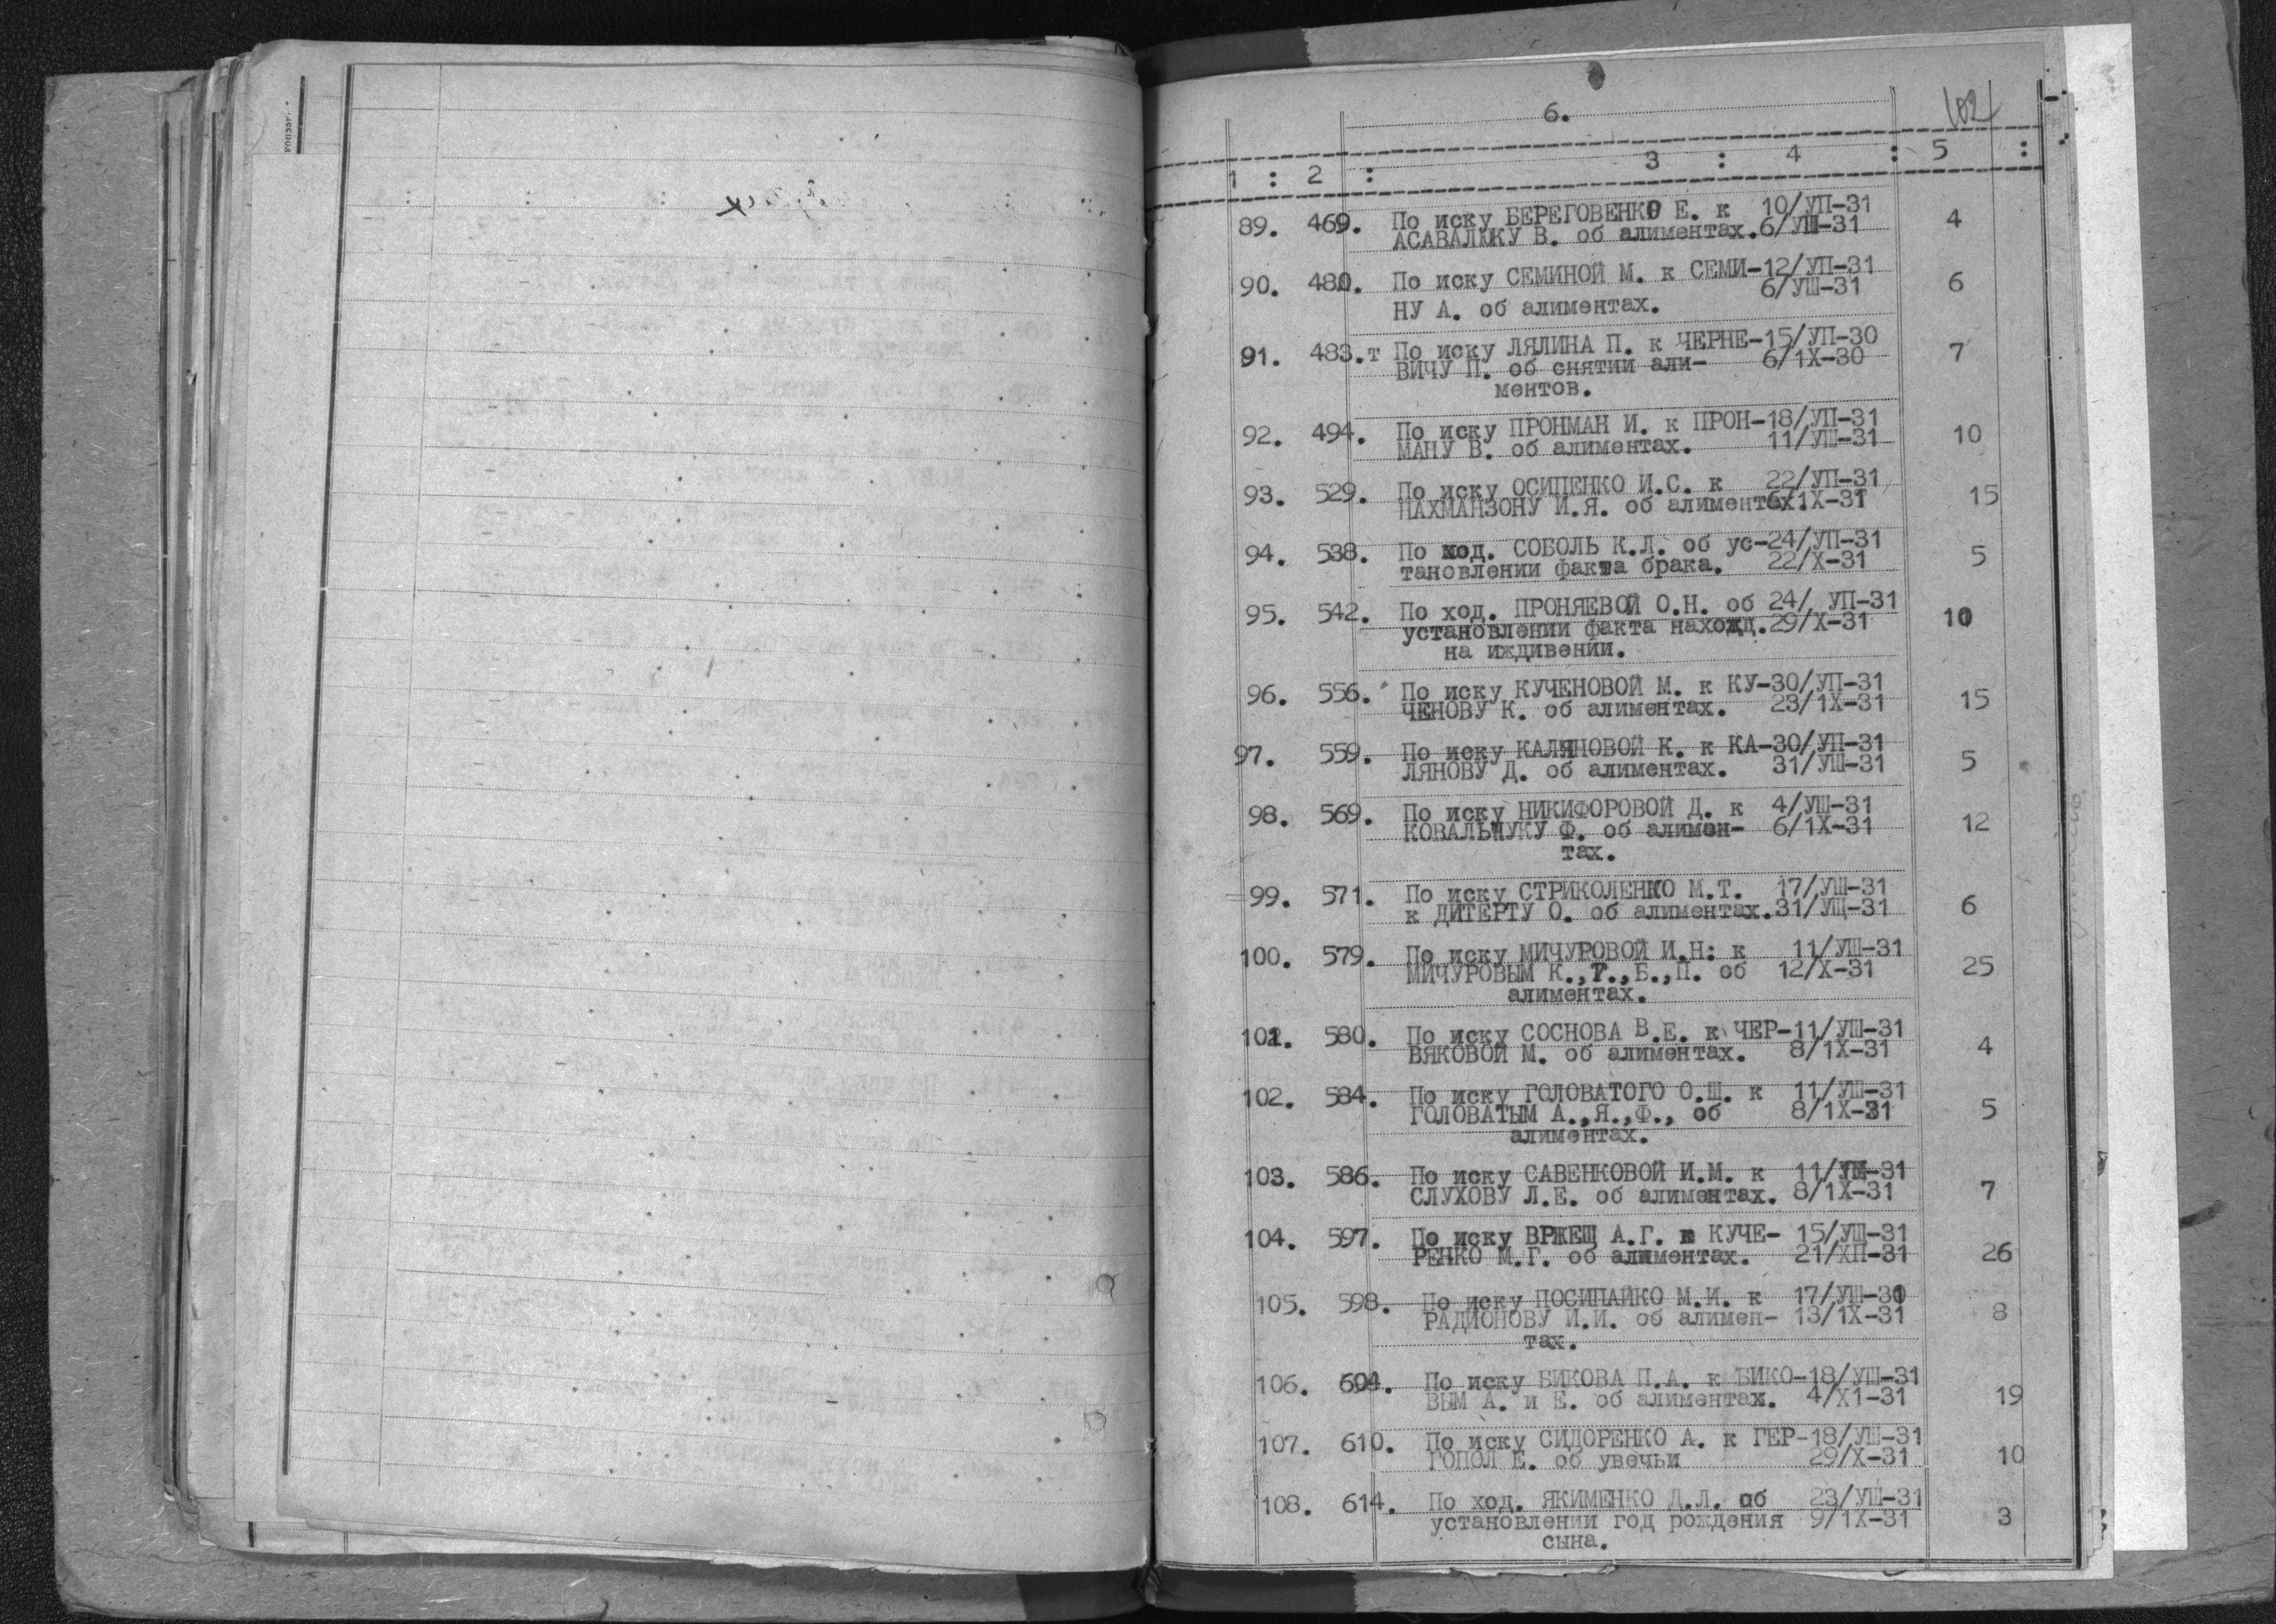 6.
102
1 : 2 : 3 : 4 : 5 :
89. 469. По иску БЕРЕГОВЕНКО Е. к 10/УП-31 4
АСАВАЛЮКУ В. об алиментах. 6/УШ-31
90. 480. По иску СЕМИНОЙ М. к СЕМИ- 12/УП-31 6
6/УШ-31
НУ А. об алиментах.
91. 483.т По иску ЛЯЛИНА П. к ЧЕРНЕ- 15/УП-30 7
ВИЧУ П. об снятии али- 6/1Х-30
ментов.
92. 494. По иску ПРОНМАН И. к ПРОН- 18/УП-31 10
МАНУ В. об алиментах. 11/УШ-31
93. 529. По иску ОСИПЕНКО И.С. к 22/УП-31 15
НАХМАНЗОНУ И.Я. об алиментах. 6/1Х-31
94. 538. По ход. СОБОЛЬ К.Л. об ус- 24/УП-31 5
тановлении факта брака. 22/Х-31
95. 542. По ход. ПРОНЯЕВОЙ О.Н. об 24/ УП-31 10
установлении факта нахожд. 29/Х-31
на иждивении.
96. 556. По иску КУЧЕНОВОЙ М. к КУ- 30/УП-31 15
ЧЕНОВУ К. об алиментах. 23/1Х-31
97. 559. По иску КАЛЯНОВОЙ К. к КА- 30/УП-31 5
ЛЯНОВУ Д. об алиментах. 31/УШ-31
98. 569. По иску НИКИФОРОВОЙ Д. к 4/УШ-31 12
КОВАЛЬЧУКУ Ф. об алимен- 6/1Х-31
тах.
99. 571. По иску СТРИКОЛЕНКО М.Т. 17/УШ-31 6
к ДИТЕРТУ О. об алиментах. 31/УЩ-31
100. 579. По иску МИЧУРОВОЙ И.Н: к 11/УШ-31 25
МИЧУРОВЫМ К.,Т.,Б.,П. об 12/Х-31
алиментах.
101. 580. По иску СОСНОВА В.Е. к ЧЕР- 11/УШ-31 4
ВЯКОВОЙ М. об алиментах. 8/1Х-31
102. 584. По иску ГОЛОВАТОГО О.Ш. к 11/УШ-31 5
ГОЛОВАТЫМ А.,Я.,Ф., об 8/1Х-31
алиментах.
103. 586. По иску САВЕНКОВОЙ И.М. к 11/УШ-31 7
СЛУХОВУ Л.Е. об алиментах. 8/1Х-31
104. 597. По иску ВРЖЕЩ А.Г. к КУЧЕ- 15/УШ-31 26
РЕНКО М.Г. об алиментах. 21/ХП-31
105. 598. По иску ПОСИПАЙКО М.И. к 17/УШ-31 8
РАДИОНОВУ И.И. об алимен- 13/1Х-31
тах.
106. 604. По иску БИКОВА П.А. к БИКО- 18/УШ-31 19
ВЫМ А. и Е. об алиментах. 4/Х1-31
107. 610. По иску СИДОРЕНКО А. к ГЕР- 18/УШ-31 10
ГОПОЛ Е. об увечьи 29/Х-31
108. 614. По ход. ЯКИМЕНКО Д.Л. об 23/УШ-31 3
установлении год рождения 9/1Х-31
сына.